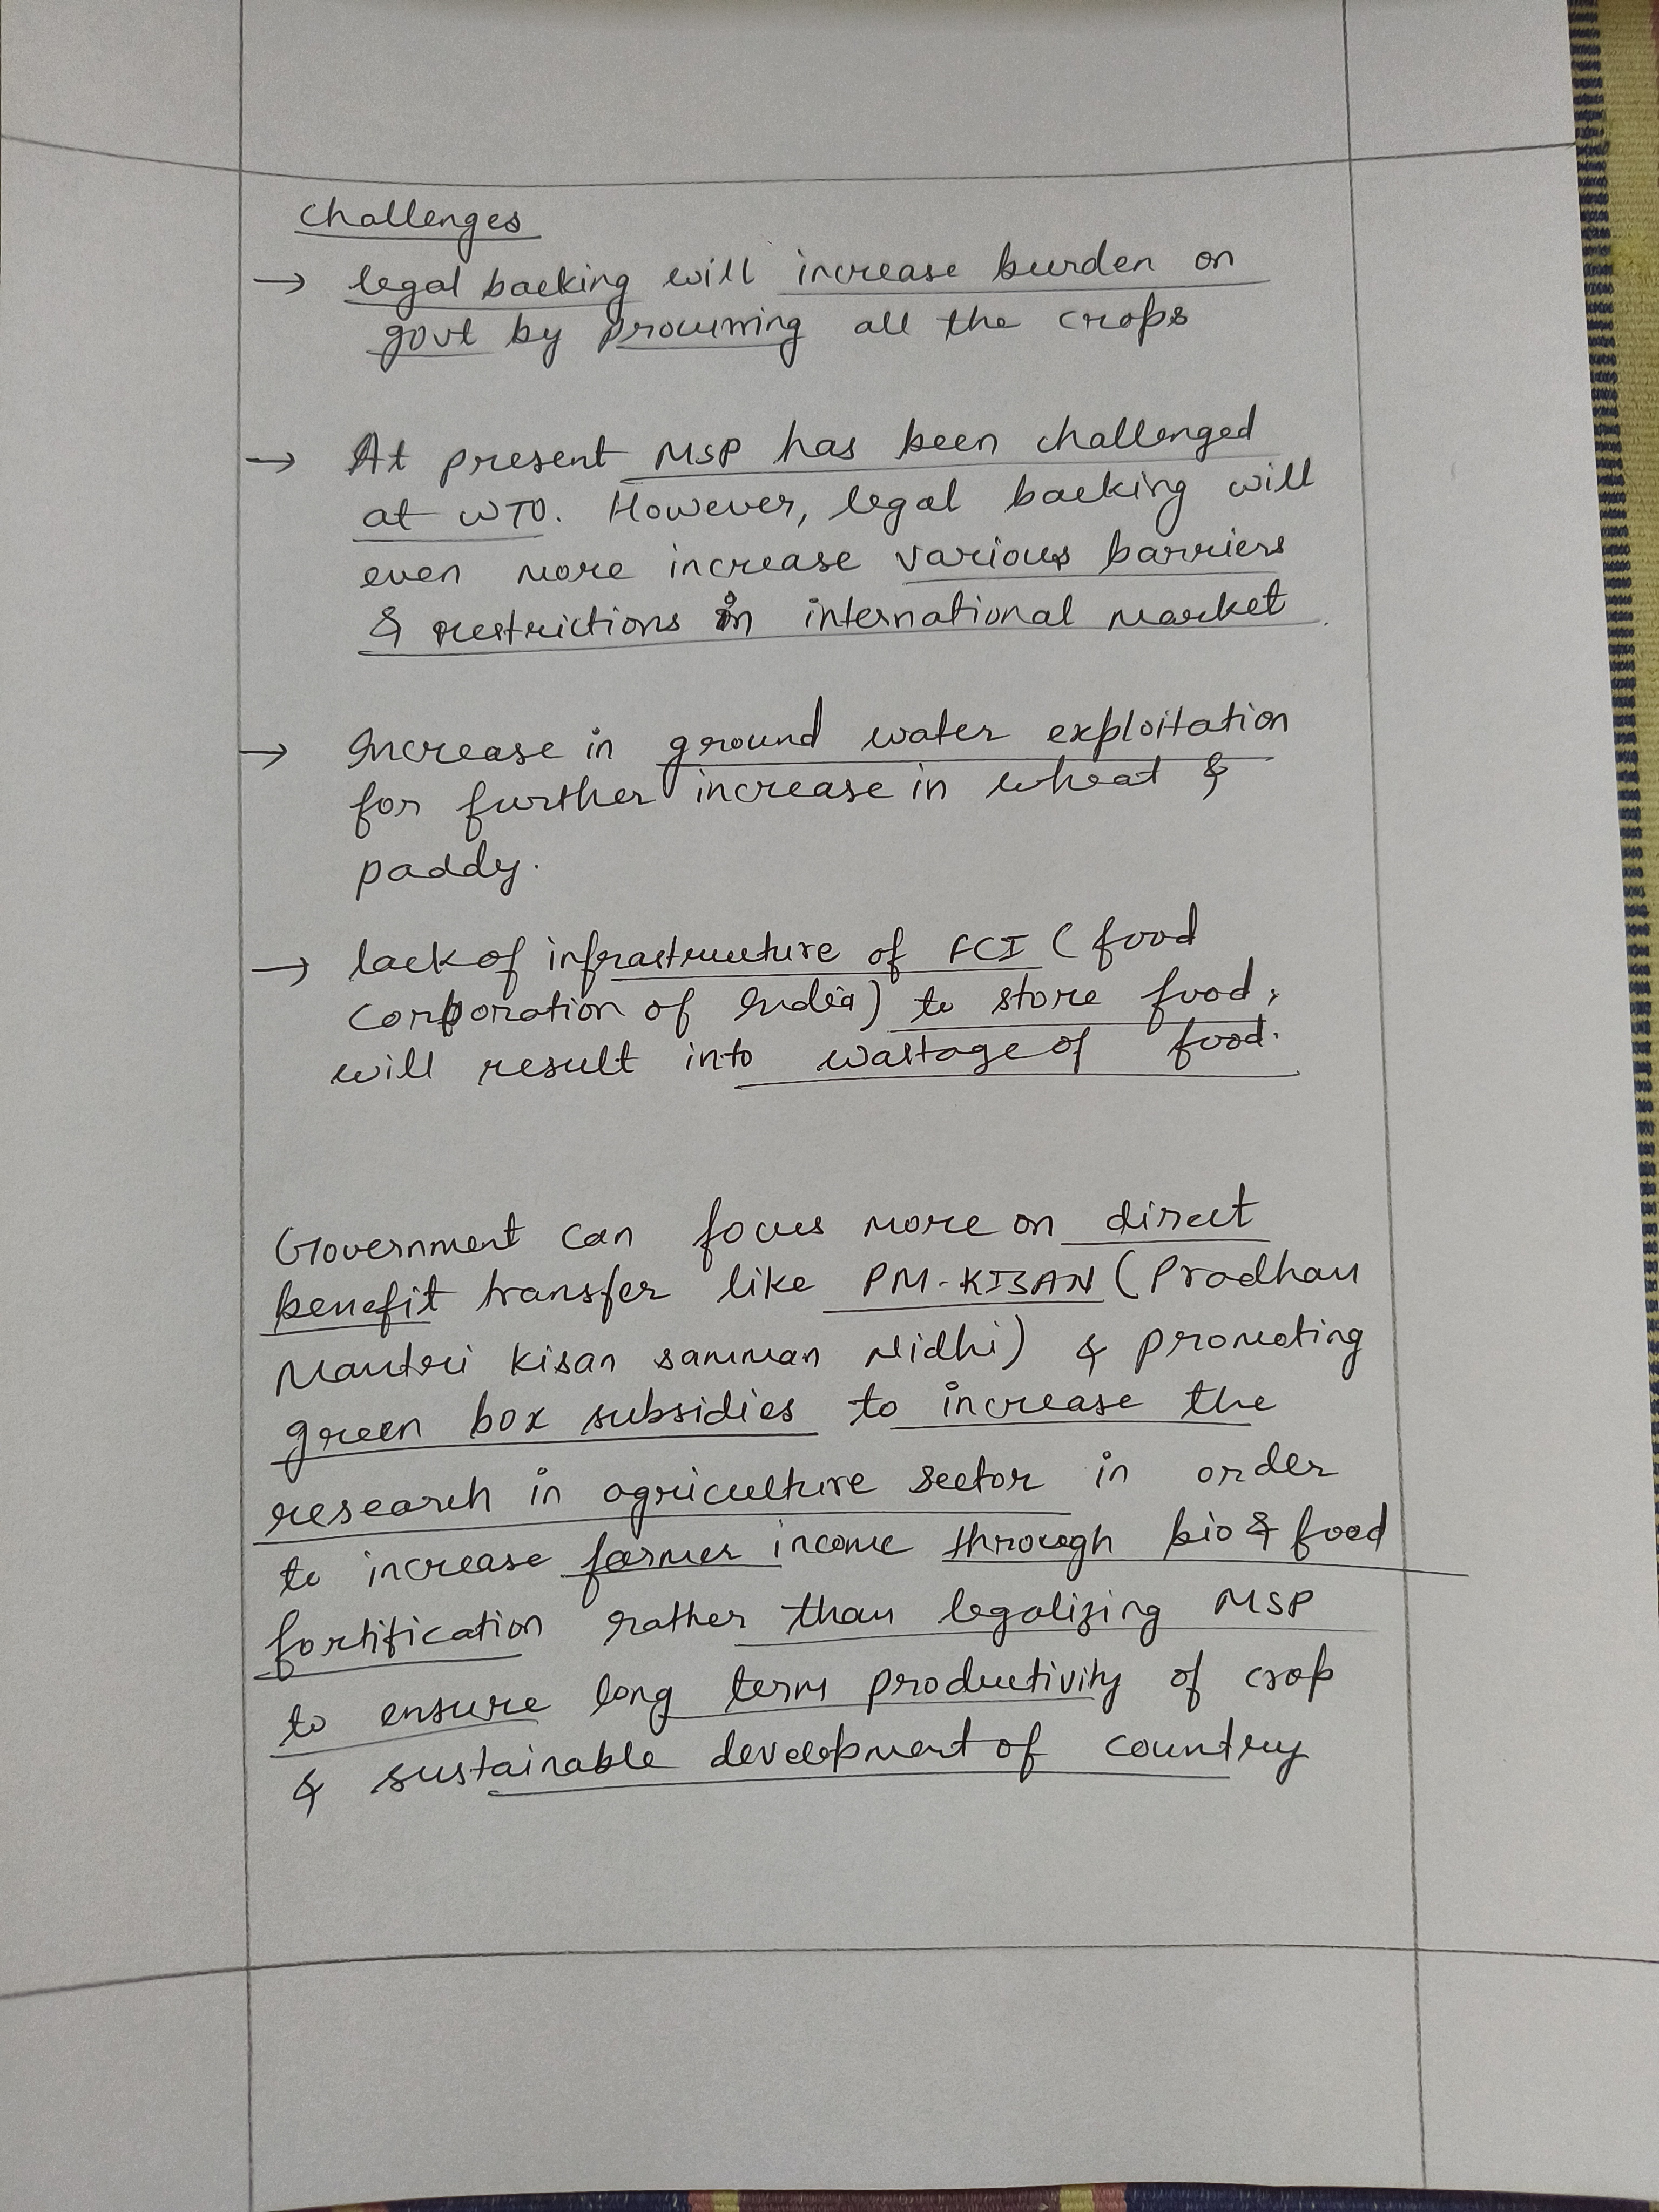 Challenges
→ legal backing will increase burden on
govt by procurring all the crops
→ At present MSP has been challenged
at WTO. However, legal backing will
even more increase various barriers
& restrictions in international market.
→ Increase in ground water exploitation
for further increase in wheat &
paddy.
→ lack of infrastructure of FCI (food
Corporation of India) to store food,
will result into wastage of food.
Government can focus more on direct
benefit transfer like PM-KISAN (Pradhan
Mantri Kisan samman Nidhi) & promoting
green box subsidies to increase the
research in agriculture sector in order
to increase farmer income through bio & food
fortification rather than legalizing MSP
to ensure long term productivity of crop
& sustainable development of country